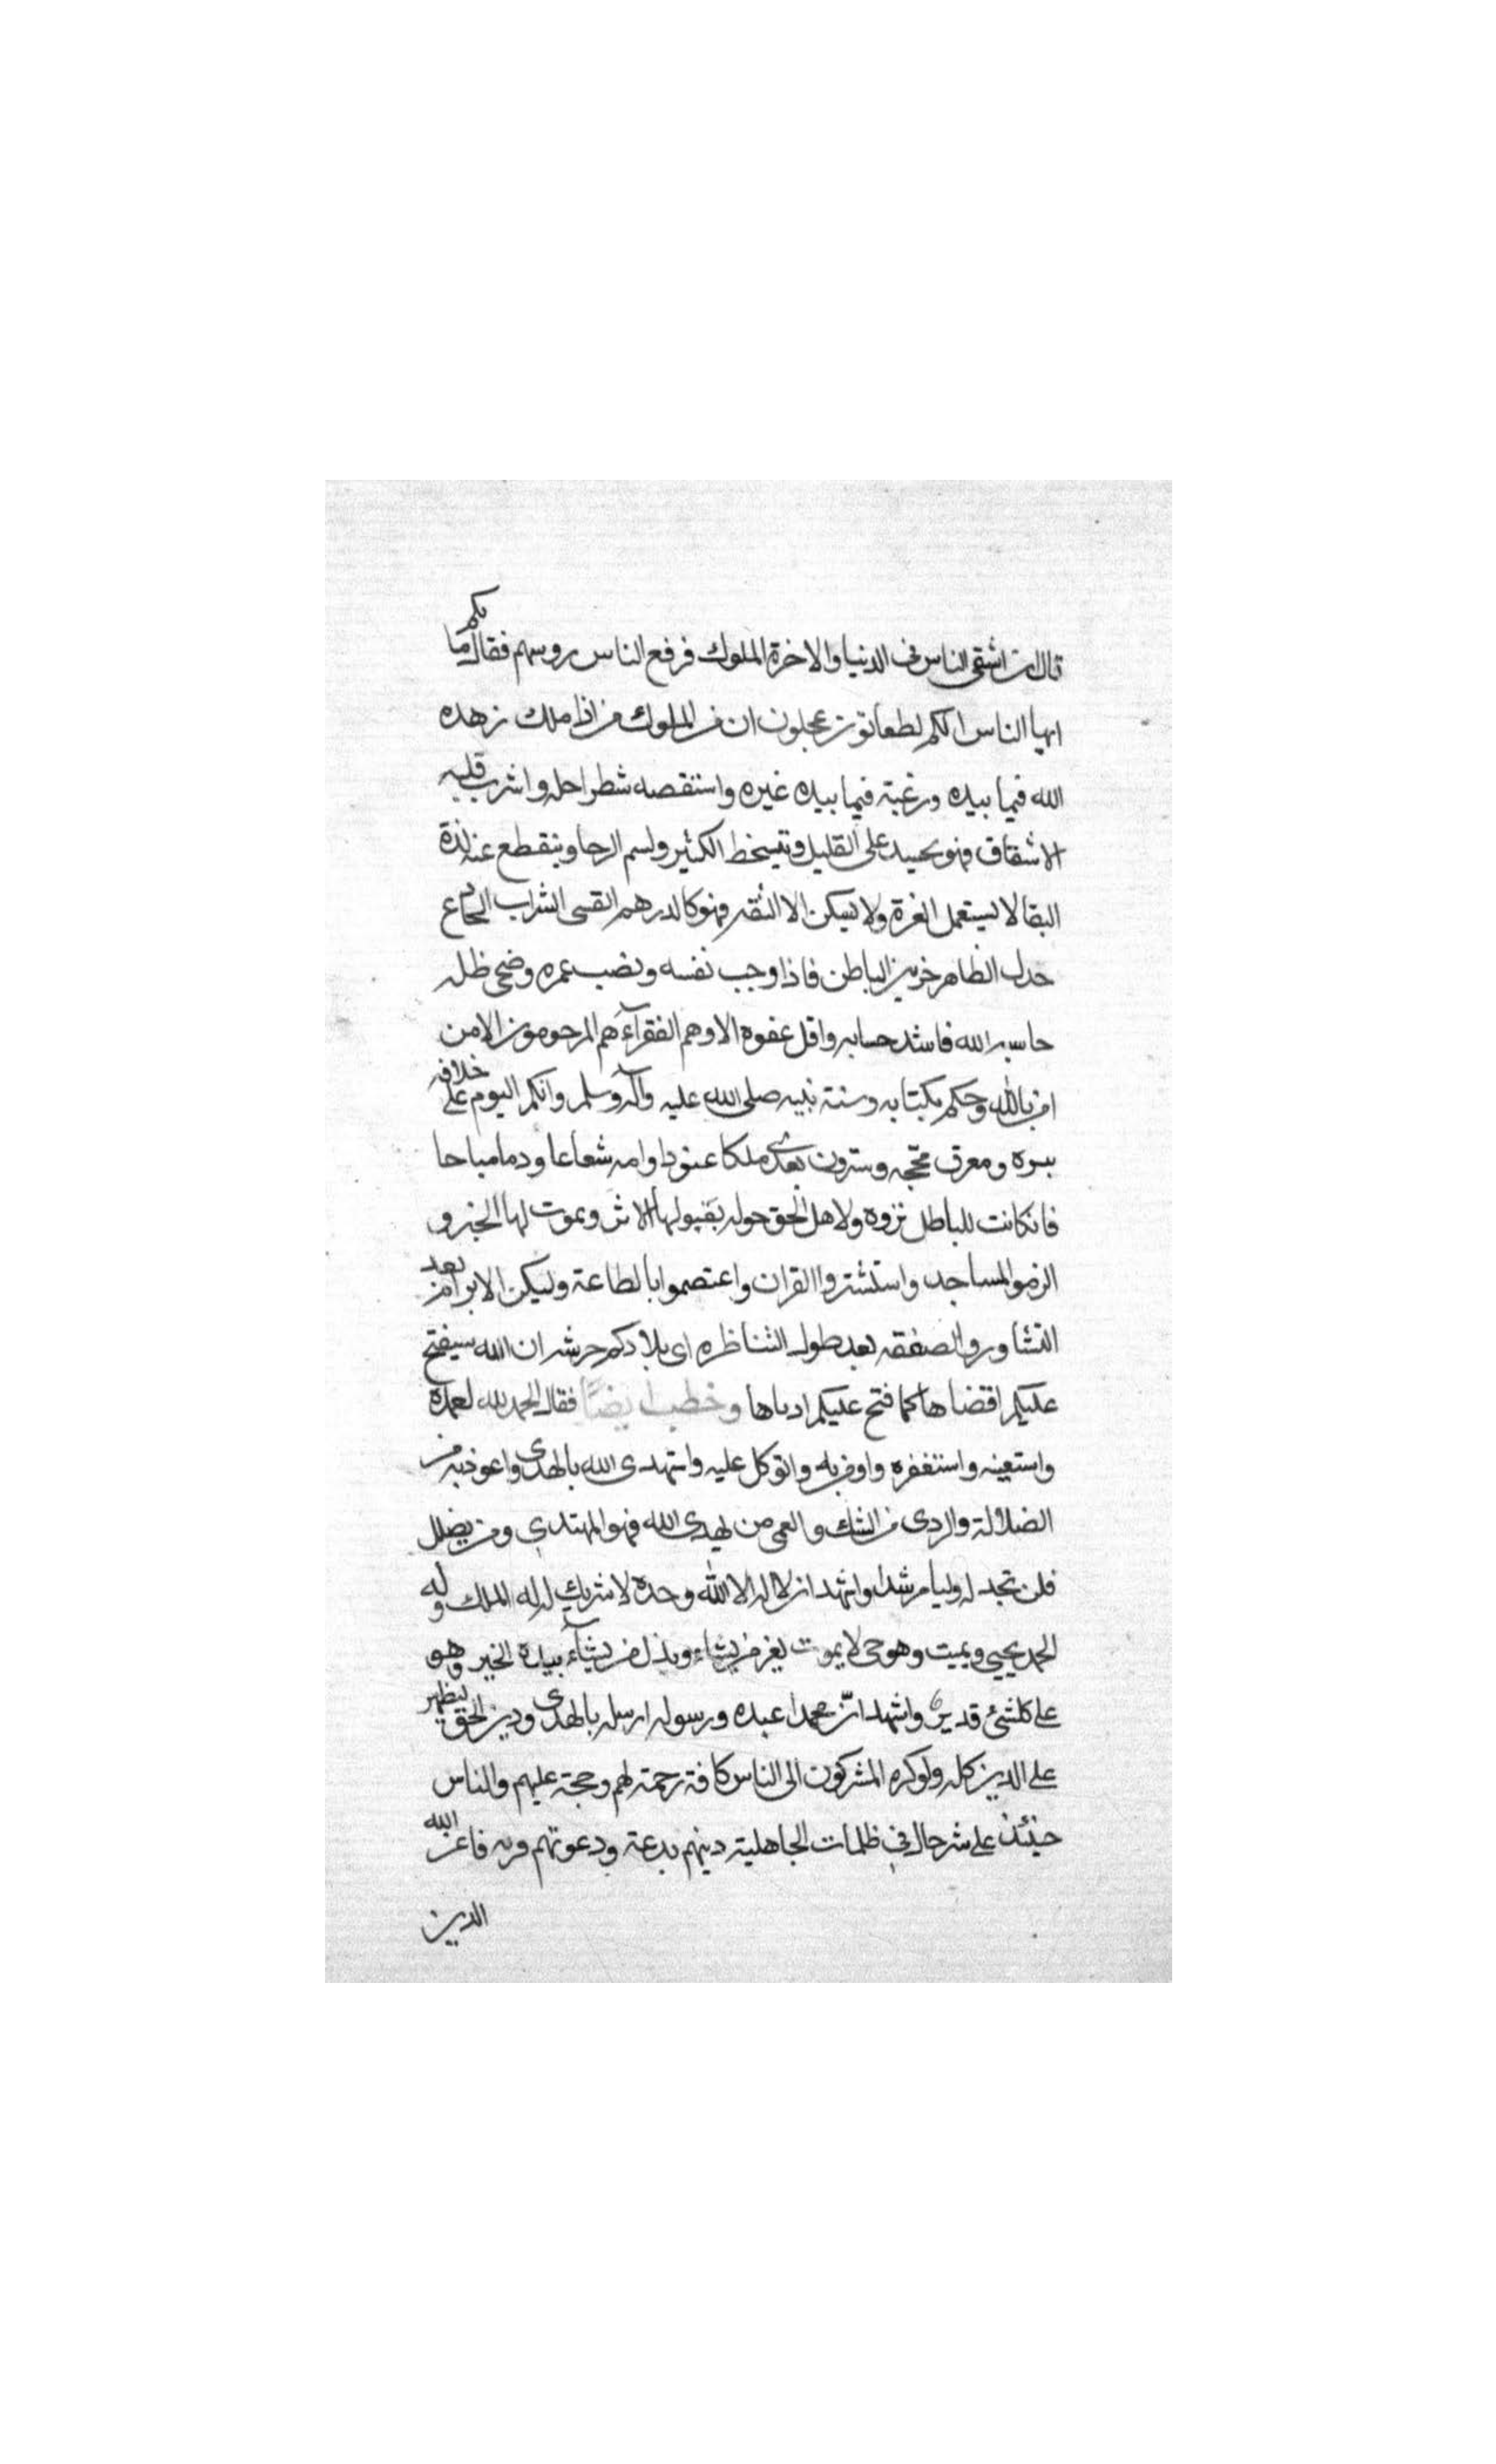 قال ان اشقى الناس فى الدنيا والاخرة الملوك فرفع الناس روسهم فقال ما بكم
ايها الناس انكم لطعانون عجلون ان من الملوك من اذا ملك زهده
الله فيما بيده ورغبته فيما بيده غيره وانتقصه شطر اجله واشرب قلبه
الاشقاق فهو يحسد على القليل وتيسخط الكثير ولسم الرحا وينقطع عنه لذة
البقا لا يستعمل الغرة ولا يسكن الا الثقه فهو كالدرهم القسى الشراب الخادع
جدل الظاهر خزين الباطن فاذا وجب نفسه ونضب عمره وضحى ظله
حاسبه الله فاشد حسابه واقل عفوه الا وهم الفقرآء هم المرحومون الا من
امن بالله وحكم بكتابه وسنة نبيه صلى الله عليه وآله وسلم وانكم اليوم على خلافه
سوه ومعرق محجه وسترون بعدى ملكا عنودا وامه شعاعا ودما مباحا
فان كانت للباطل نزوه ولاهل الحق جوله بقبولها الاثر ويموت لها الخبر و
الزموا المساجد واستشتروا القران واعتصموا بالطاعة وليكن الابرام بعد
التشاور والصفقه بعد طول التناظره اى بلادكم حرشه ان الله سيفتح
عليكم اقتضاها كما فتح عليكم ادناها وخطب ايضًا فقال الحمد لله لعمده
واستعينه واستغفره واومن به واتوكل عليه واستهدى الله بالهدى واعوذ به من
الضلالة والردى من الشك والعمى من يهدى الله فهو المهتدى ومن يضلل
فلن تجد له وليا مرشدا واشهد ان لا اله الا الله وحده لا شريك له له الملك وله
الحمد يحيى ويميت وهو حى لا يموت يعز من يشاء ويذل من يشآء بيده الخير وهو
على كلشئ قدير واشهد انّ محمدا عبده ورسوله ارسله بالهدى ودين الحق ليظهر
على الدين كله ولو كره المشركون الى الناس كافة رحمة لهم وحجة عليهم والناس
حينئذ على شر حال فى ظلمات الجاهلية دينهم بدعة ودعوتهم فريه فاعز الله
الدين